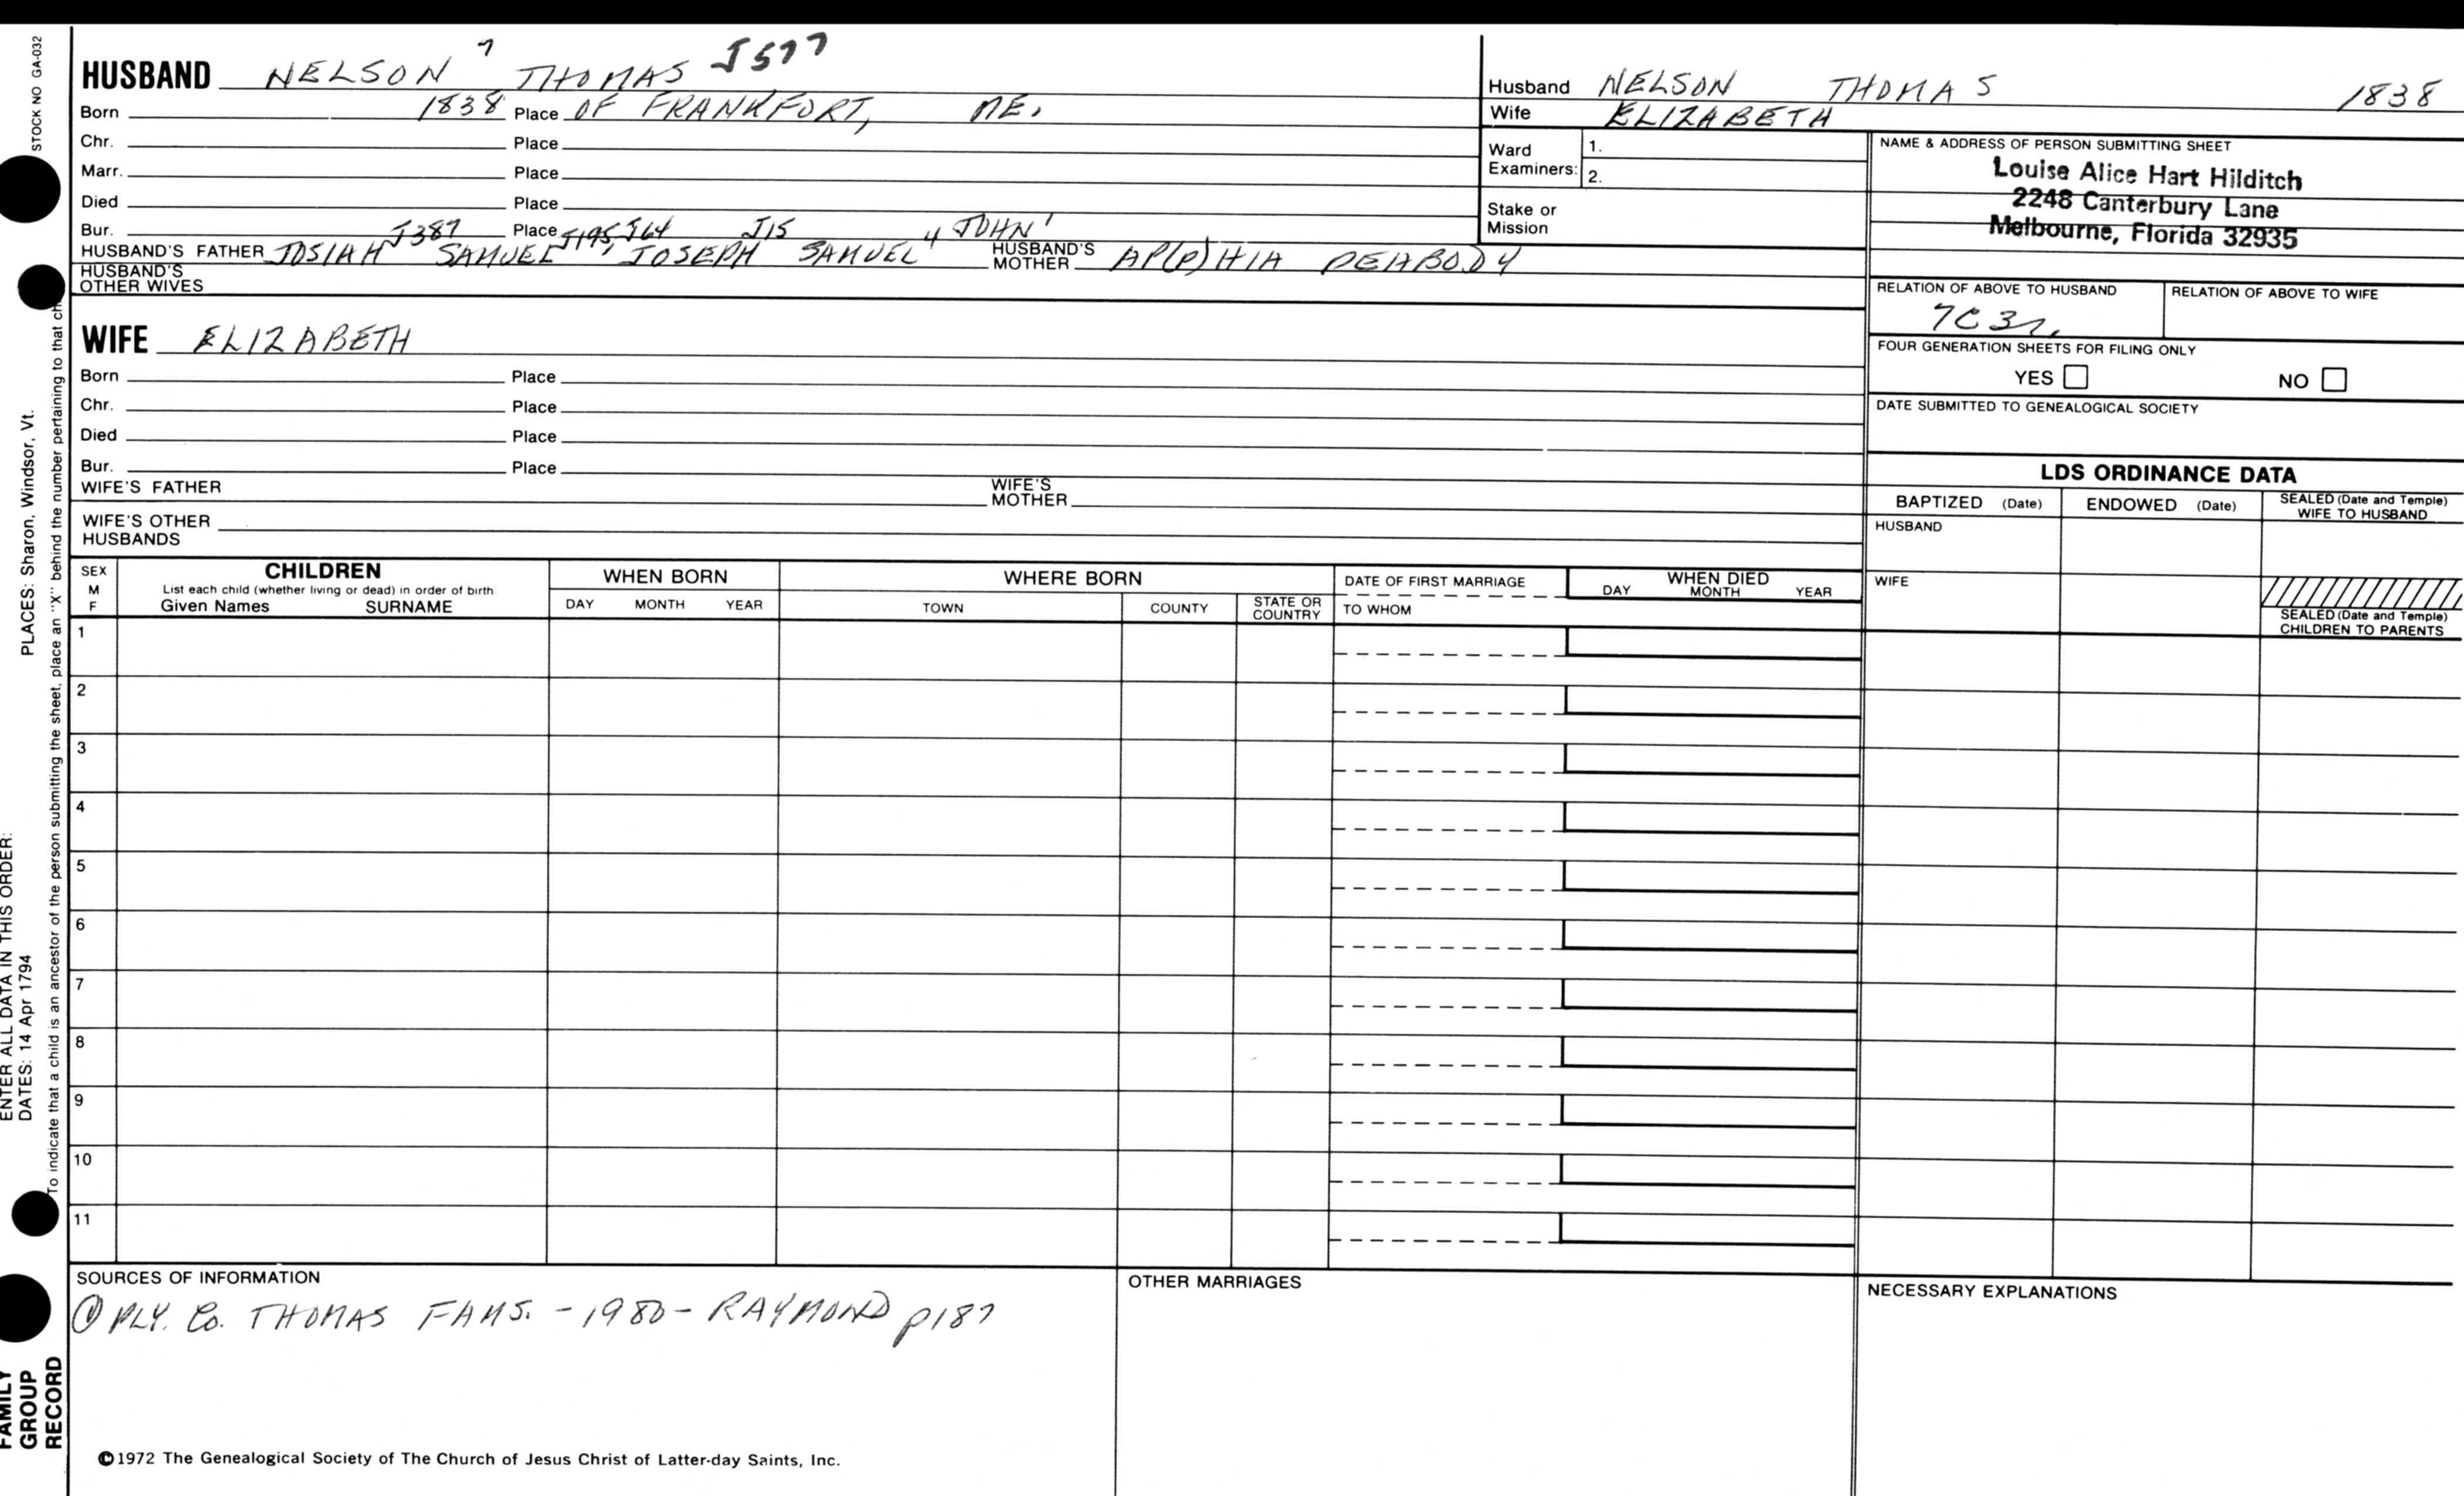 STOCK NO GA-032
PLACES: Sharon, Windsor, Vt.
ENTER ALL DATA IN THIS ORDER:
DATES: 14 Apr 1794
To indicate that a child is an ancestor of the person submitting the sheet, place an "X" behind the number pertaining to that ch
FAMILY
GROUP
RECORD
HUSBAND NELSON 7 THOMAS J577
Born 1838 Place OF FRANKFORT, ME.
Chr. Place
Marr. Place
Died Place
Bur. Place
J387 J195, J64 J15 4 JOHN 1
HUSBAND'S FATHER JOSIAH SAMUEL, JOSEPH SAMUEL HUSBAND'S MOTHER AP(P)HIA PEABODY
HUSBAND'S
OTHER WIVES
WIFE ELIZABETH
Born Place
Chr. Place
Died Place
Bur. Place
WIFE'S FATHER WIFE'S MOTHER
WIFE'S OTHER
HUSBANDS
Husband NELSON THOMAS 1838
Wife ELIZABETH
Ward
Examiners:
1.
2.
Stake or
Mission
NAME & ADDRESS OF PERSON SUBMITTING SHEET
Louise Alice Hart Hilditch
2248 Canterbury Lane
Melbourne, Florida 32935
RELATION OF ABOVE TO HUSBAND RELATION OF ABOVE TO WIFE
7C3r.
FOUR GENERATION SHEETS FOR FILING ONLY
YES NO
DATE SUBMITTED TO GENEALOGICAL SOCIETY
LDS ORDINANCE DATA
BAPTIZED (Date) ENDOWED (Date) SEALED (Date and Temple)
WIFE TO HUSBAND
HUSBAND
WIFE
SEALED (Date and Temple)
CHILDREN TO PARENTS
SEX
M
F
CHILDREN
List each child (whether living or dead) in order of birth
Given Names SURNAME
WHEN BORN
DAY MONTH YEAR
WHERE BORN
TOWN COUNTY STATE OR COUNTRY
DATE OF FIRST MARRIAGE
TO WHOM
WHEN DIED
DAY MONTH YEAR
1
2
3
4
5
6
7
8
9
10
11
SOURCES OF INFORMATION
① PLY. Co. THOMAS FAMS. - 1980 - RAYMOND p187
OTHER MARRIAGES
NECESSARY EXPLANATIONS
©1972 The Genealogical Society of The Church of Jesus Christ of Latter-day Saints, Inc.